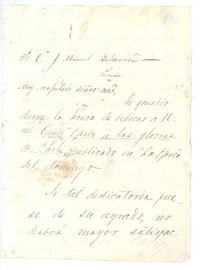 Sr. D. J. Manuel Balmaceda
Presente
Muy respetado señor mío,
Me permito
darme la honra de dedicar a U.
mi Canto Épico a las glorias
de Chile publicado en "La Época"
del domingo.
Si tal dedicatoria fue-
se de su agrado, no
habrá mayor satisfac-